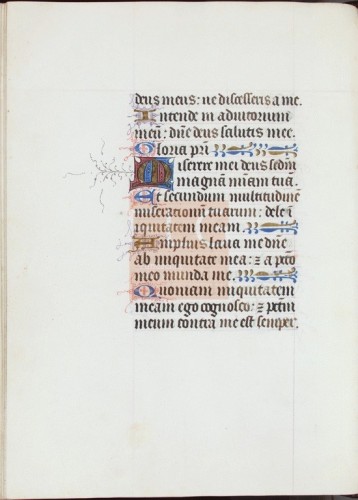 deus meus: ne discesseris a me.
Intende in adiutorium
meū: dn̄e deus salutis mee.
Gloria pr̄i
Miserere mei deus sedm̄
magnā m̄iam tuā.
Et secundum multitudinē
miserationū tuarum: dele ī
iquitatem meam.
Amplius laua me dn̄e
ab iniquitate mea: ⁊ a pctō
meo munda me.
Quoniam iniquitatem
meam ego cognosco: ⁊ pctm̄
meum contra me est semper.